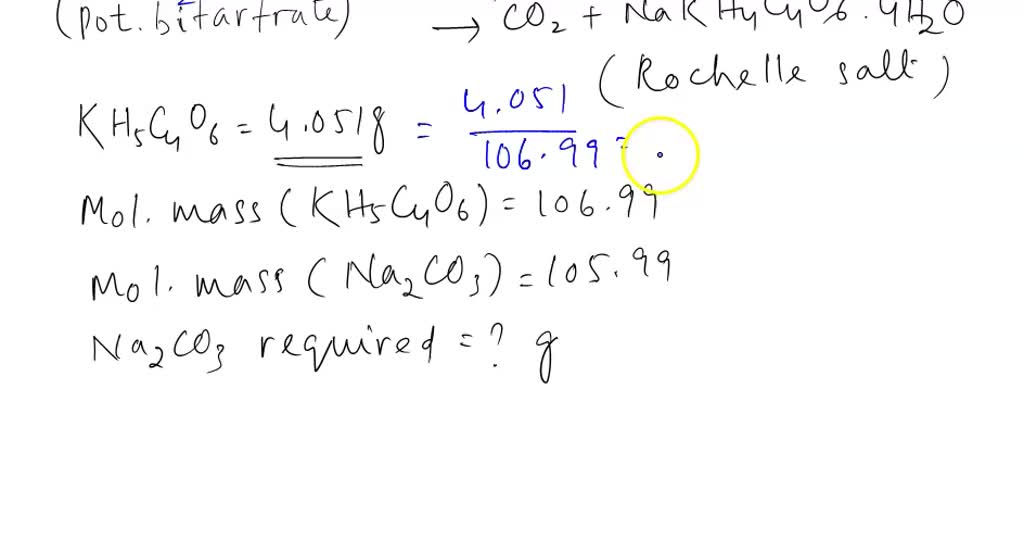 (pot. bitartrate) → CO₂ + NaKH₄C₄O₆.4H₂O
(Rochelle salt)
KH₅C₄O₆ = 4.051g = 4.051/106.99 =
Mol. mass (KH₅C₄O₆) = 106.99
Mol. mass (Na₂CO₃) = 105.99
Na₂CO₃ required = ? g